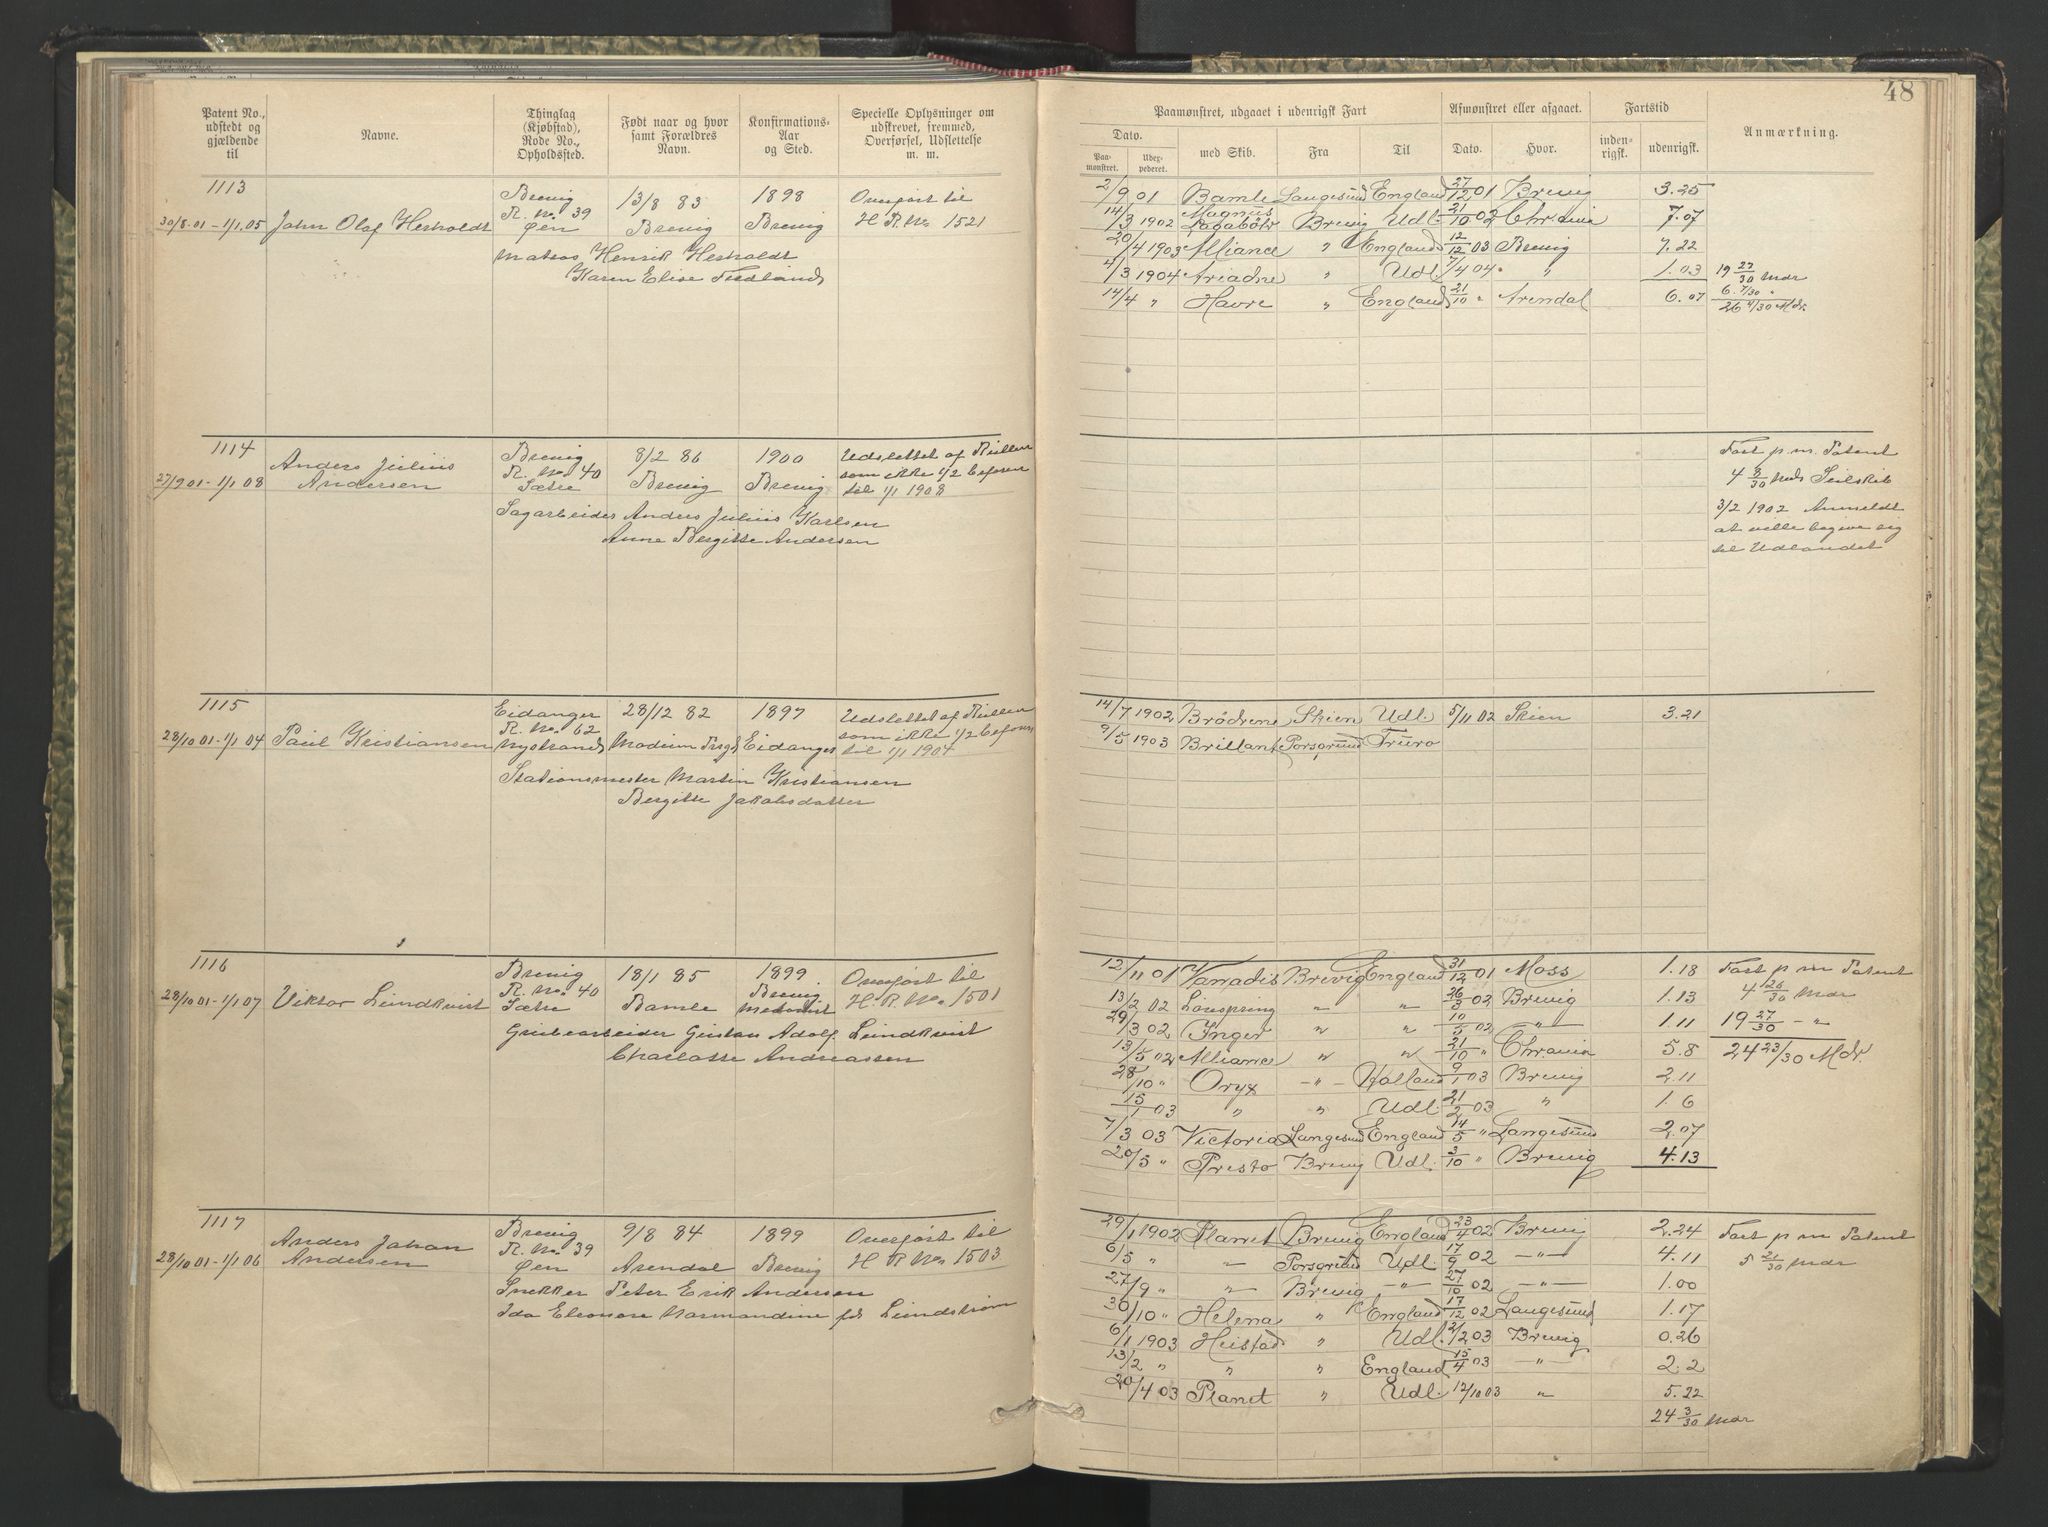 48
Patent No., udstedt og gjældende til
Navne.
Thinglag (Kjøbstad), Rode No., Opholdssted.
Født naar og hvor samt Forældres Navn.
Konfirmations-Aar og Sted.
Specielle Oplysninger om udskrevet, fremmed, Overførsel, Udslettelse m. m.
Paamønstret, udgaaet i udenrigsk Fart
Afmønstret eller afgaaet.
Fartstid
Anmærkning.
Dato.
Paa-monstret.
Udex-pederet.
med Skib.
Fra
Til
Dato.
Hvor.
inden-rigsk.
udenrigsk.
1113
30/8.01-1/1.05 John Olaf Herholdt
Brevig R. No. 39 Øen
13/8 83 Brevig
1898 Brevig
Overført til H. R. No. 1521
Matros Henrik Herholdt
Karen Elise Fredlund
2/9 01 Bamle Langesund England 27/12 01 Brevig 3.25
14/3 1902 Magnus Lagabøter Brevig Udl. 21/10 02 Chrania 7.07
20/4 1903 Alliance " England 12/12 03 Brevig 7.22
4/3 1904 Ariadne " Udl. 7/4 04 " 1.03 19 27/30 Mdr
14/4 " Havre " England 21/10 " Arendal 6.07 6. 7/30 "
26 4/30 Mdr.
1114
27/9 01-1/1 08 Anders Julius Andersen
Brevig R. No. 40 Sætre
8/2 86 Brevig
1900 Brevig
Udslettet af Rullen som ikke 1/2 befaren til 1/1 1908
Sagarbeider Anders Julius Karlsen
Anne Bergitte Andersen
Fart p. m. Patent
4 8/30 Mdr Seilskib
3/2 1902 Anmeldt
at ville begive sig
til Udlandet
1115
28/10 01-1/1 04 Paul Kristiansen
Eidanger R. No. 62 Nystrand
28/12 82 Modum Prgj
1897 Eidanger
Udslettet af Rullen som ikke 1/2 befaren til 1/1 1904
Stationsmester Martin Kristiansen
Bergitte Jakobsdatter
14/7 1902 Brødrene Skien Udl. 5/11 02 Skien 3.21
9/5 1903 Brillant Porsgrund Truro
1116
28/10 01-1/1 07 Viktor Lundkvist
Brevig R. No. 40 Sætre
18/1 85 Bamle
1899 Brevig Metodist
Overført til H. R. No. 1501
Grubearbeider Gustav Adolf Lundkvist
Charlotte Andreassen
12/11 01 Varradis Brevig England 31/12 01 Moss 1.18 Fart p m Patent
13/2 02 Lonspring " " 26/3 02 Brevig 1.13 4 26/30 Mdr
29/3 02 Inger " " 10/5 02 " 1.11 19 27/30 - "
13/5 02 Alliance " " 21/10 " Chrania 5.8 24 23/30 Mdr.
28/10 " Oryx - " - Holland 9/1 03 Brevig 2.11
15/1 03 " " Udl. 21/2 03 " 1.6
7/3 03 Victoria Langesund England 14/5 " Langesund 2.07
20/5 " Presto Brevig Udl. 3/10 " Brevig 4.13
1117
28/10 01-1/1 06 Anders Johan Andersen
Brevig R. No. 39 Øen
9/8 84 Arendal
1899 Brevig
Overført til H. R. No. 1503
Snekker Peter Erik Andersen
Ida Eleonore Normandine f. Lundstrøm
29/1 1902 Planet Brevig England 23/4 02 Brevig 2.24 Fart p m Patent
6/5 " - " - Porsgrund Udl. 17/9 02 - " - 4.11 5 21/30 Mdr
27/9 " - " - Brevig - " - 27/10 02 - " - 1.00
30/10 " Helena " England 17/12 02 Langesund 1.17
6/1 1903 Heistad " Udl. 2/2 03 Brevig 0.26
13/2 " " " England 15/4 03 - " - 2.2
20/4 03 Planet " Udl. 12/10 03 " 5.22
24 3/30 Mdr